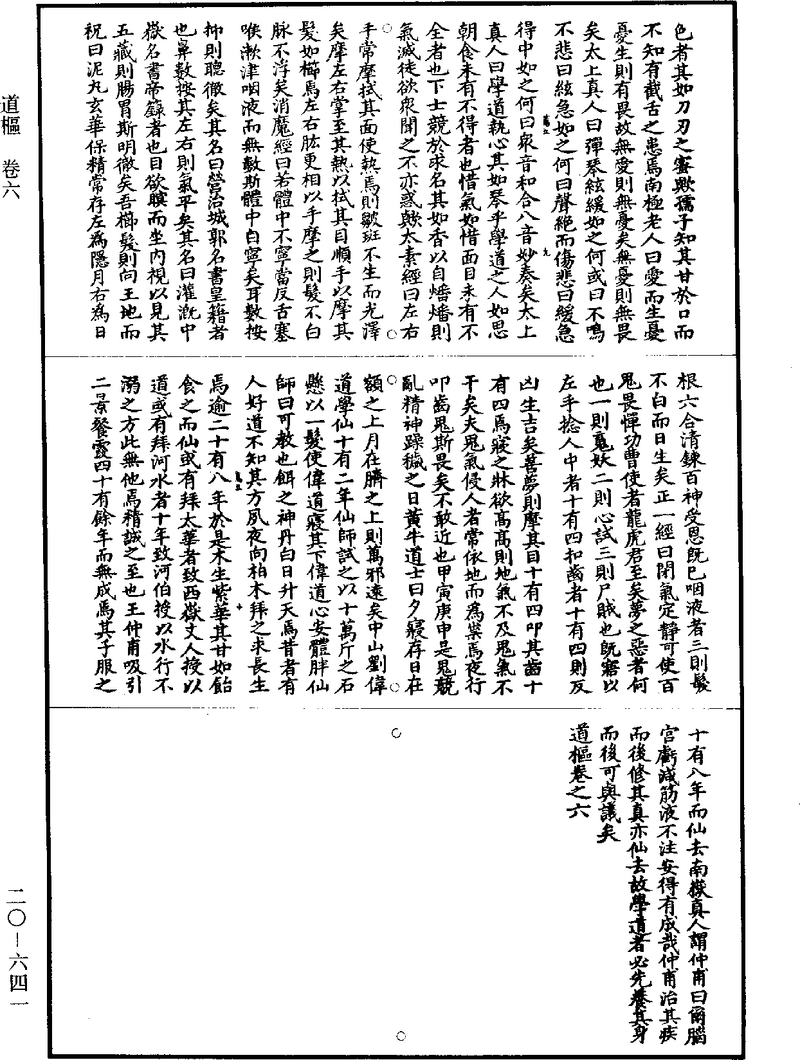 道樞　卷六
二〇—六四一
色者其如刀刃之蜜歟孺子知其甘於口而
不知有截舌之患焉南極老人曰愛而生憂
憂生則有畏故無愛則無憂矣無憂則無畏
矣太上真人曰彈琴絃緩如之何或曰不鳴
不悲曰絃急如之何曰聲絕而傷悲曰緩急
得中如之何曰衆音和合八音妙奏矣太上
真人曰學道執心其如琴乎學道之人如思
朝食未有不得者也惜氣如惜面目未有不
全者也下士競於求名其如香以自燔燔則
氣滅徒欲衆聞之不亦惑歟太素經曰左右
手常摩拭其面使熱焉則皺斑不生而光澤
矣摩左右掌至其熱以拭其目順手以摩其
髮如櫛焉左右肱更相以手摩之則髮不白
脉不浮矣消魔經曰若體中不寧當反舌塞
喉漱津咽液而無數斯體中自寧矣耳數按
抑則聰徹矣其名曰營治城郭名書皇籍者
也鼻數按其左右則氣平矣其名曰灌溉中
嶽名書帝籙者也目欲瞑而坐內視以見其
五藏則腸胃斯明徹矣吾櫛髮則向王地而
祝曰泥丸玄華保精常存左為隱月右為日
根六合清鍊百神受恩旣已咽液者三則髮
不白而日生矣正一經曰閉氣定靜可使百
鬼畏憚功曹使者龍虎君至矣夢之惡者何
也一則䰟妖二則心試三則尸賊也旣寤以
左手捻人中者十有四扣齒者十有四則反
凶生吉矣善夢則摩其目十有四叩其齒十
有四焉寢之牀欲高高則地氣不及鬼氣不
干矣夫鬼氣侵人者常依地而為祟焉夜行
叩齒鬼斯畏矣不敢近也甲寅庚申是鬼競
亂精神躁穢之日黃牛道士曰夕寢存日在
額之上月在臍之上則萬邪遠矣中山劉偉
道學仙十有二年仙師試之以十萬斤之石
懸以一髮使偉道寢其下偉道心安體胖仙
師曰可教也餌之神丹白日升天焉昔者有
人好道不知其方夙夜向柏木拜之求長生
焉逾二十有八年於是木生紫華其甘如飴
食之而仙或有拜太華者致西嶽丈人授以
道或有拜河水者十年致河伯授以水行不
溺之方此無他焉精誠之至也王仲甫吸引
二景餐霞四十有餘年而無成焉其子服之
十有八年而仙去南嶽真人謂仲甫曰爾腦
宮虧減筋液不注安得有成哉仲甫治其疾
而後修其真亦仙去故學道者必先養其身
而後可與議矣
道樞卷之六